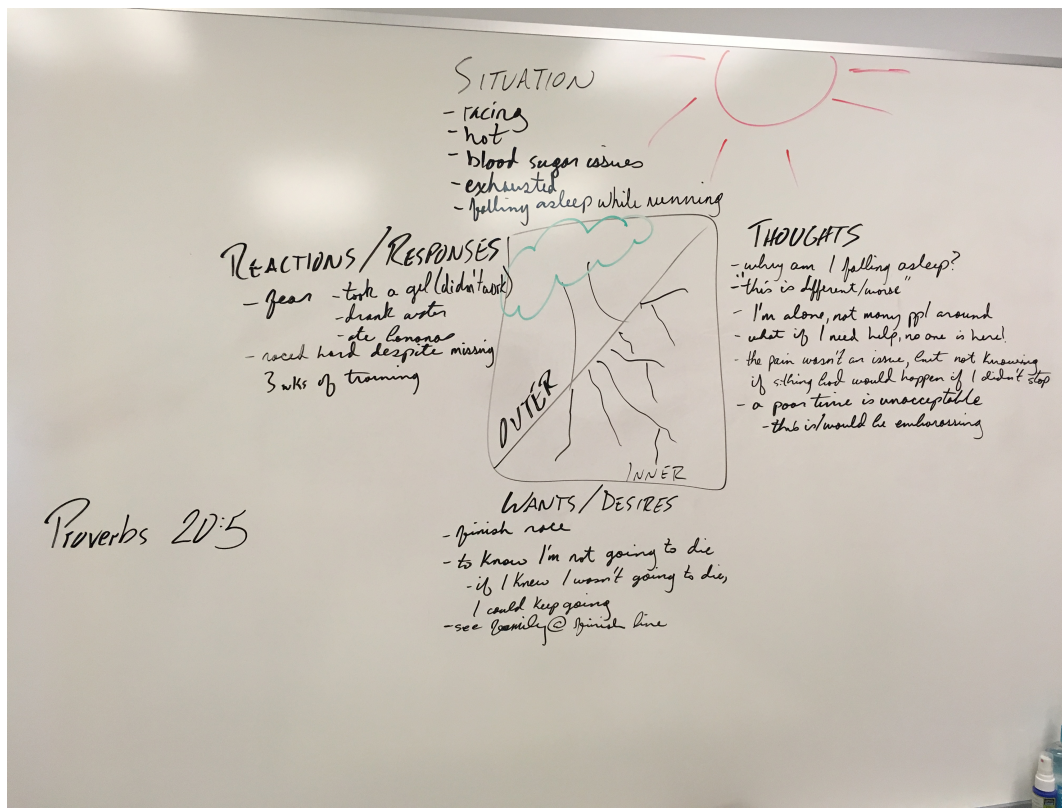 SITUATION
- racing
- hot
- blood sugar issues
- exhausted
- falling asleep while running
REACTIONS/RESPONSES
- fear - took a gel (didn't work)
- drank water
- ate banana
- raced hard despite missing
3 wks of training
THOUGHTS
- why am I falling asleep?
- "this is different/worse"
- I'm alone, not many ppl around
- what if I need help, no one is here!
- the pain wasn't an issue, but not knowing
if s.thing bad would happen if I didn't stop
- a poor time is unacceptable
- this is/would be embarassing
OUTER
INNER
WANTS/DESIRES
- finish race
- to know I'm not going to die
- if I knew I wasn't going to die,
I could keep going
- see family @ finish line
Proverbs 20:5